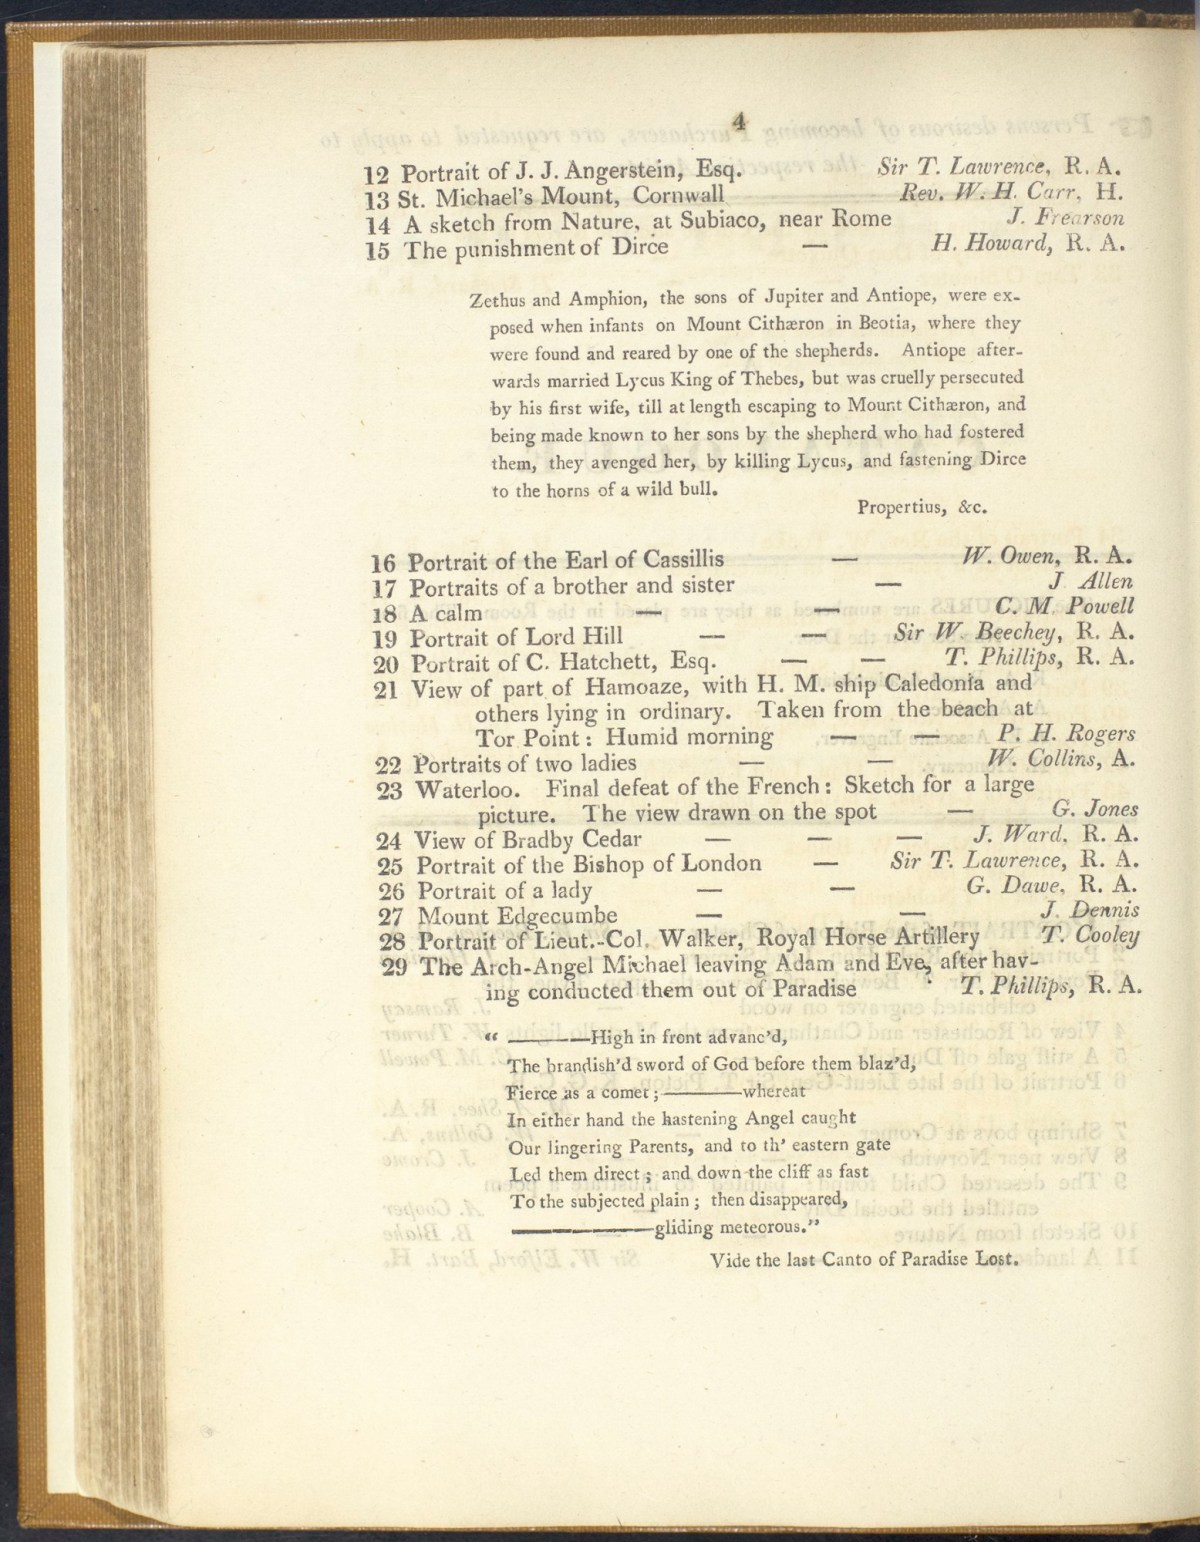 4
12 Portrait of J. J. Angerstein, Esq. Sir T. Lawrence, R. A.
13 St. Michael's Mount, Cornwall Rev. W. H. Carr, H.
14 A sketch from Nature, at Subiaco, near Rome J. Frearson
15 The punishment of Dirce — H. Howard, R. A.
Zethus and Amphion, the sons of Jupiter and Antiope, were ex-
posed when infants on Mount Cithæron in Beotia, where they
were found and reared by one of the shepherds. Antiope after-
wards married Lycus King of Thebes, but was cruelly persecuted
by his first wife, till at length escaping to Mount Cithæron, and
being made known to her sons by the shepherd who had fostered
them, they avenged her, by killing Lycus, and fastening Dirce
to the horns of a wild bull.
Propertius, &c.
16 Portrait of the Earl of Cassillis — W. Owen, R. A.
17 Portraits of a brother and sister — J Allen
18 A calm — — C. M. Powell
19 Portrait of Lord Hill — — Sir W. Beechey, R. A.
20 Portrait of C. Hatchett, Esq. — — T. Phillips, R. A.
21 View of part of Hamoaze, with H. M. ship Caledonia and
others lying in ordinary. Taken from the beach at
Tor Point : Humid morning — — P. H. Rogers
22 Portraits of two ladies — — W. Collins, A.
23 Waterloo. Final defeat of the French : Sketch for a large
picture. The view drawn on the spot — G. Jones
24 View of Bradby Cedar — — — J. Ward, R. A.
25 Portrait of the Bishop of London — Sir T. Lawrence, R. A.
26 Portrait of a lady — — G. Dawe, R. A.
27 Mount Edgecumbe — — J. Dennis
28 Portrait of Lieut.-Col. Walker, Royal Horse Artillery T. Cooley
29 The Arch-Angel Michael leaving Adam and Eve, after hav-
ing conducted them out of Paradise T. Phillips, R. A.
“ ———High in front advanc'd,
The brandish'd sword of God before them blaz'd,
Fierce as a comet ; ———whereat
In either hand the hastening Angel caught
Our lingering Parents, and to th' eastern gate
Led them direct ; and down the cliff as fast
To the subjected plain ; then disappeared,
—————gliding meteorous.”
Vide the last Canto of Paradise Lost.